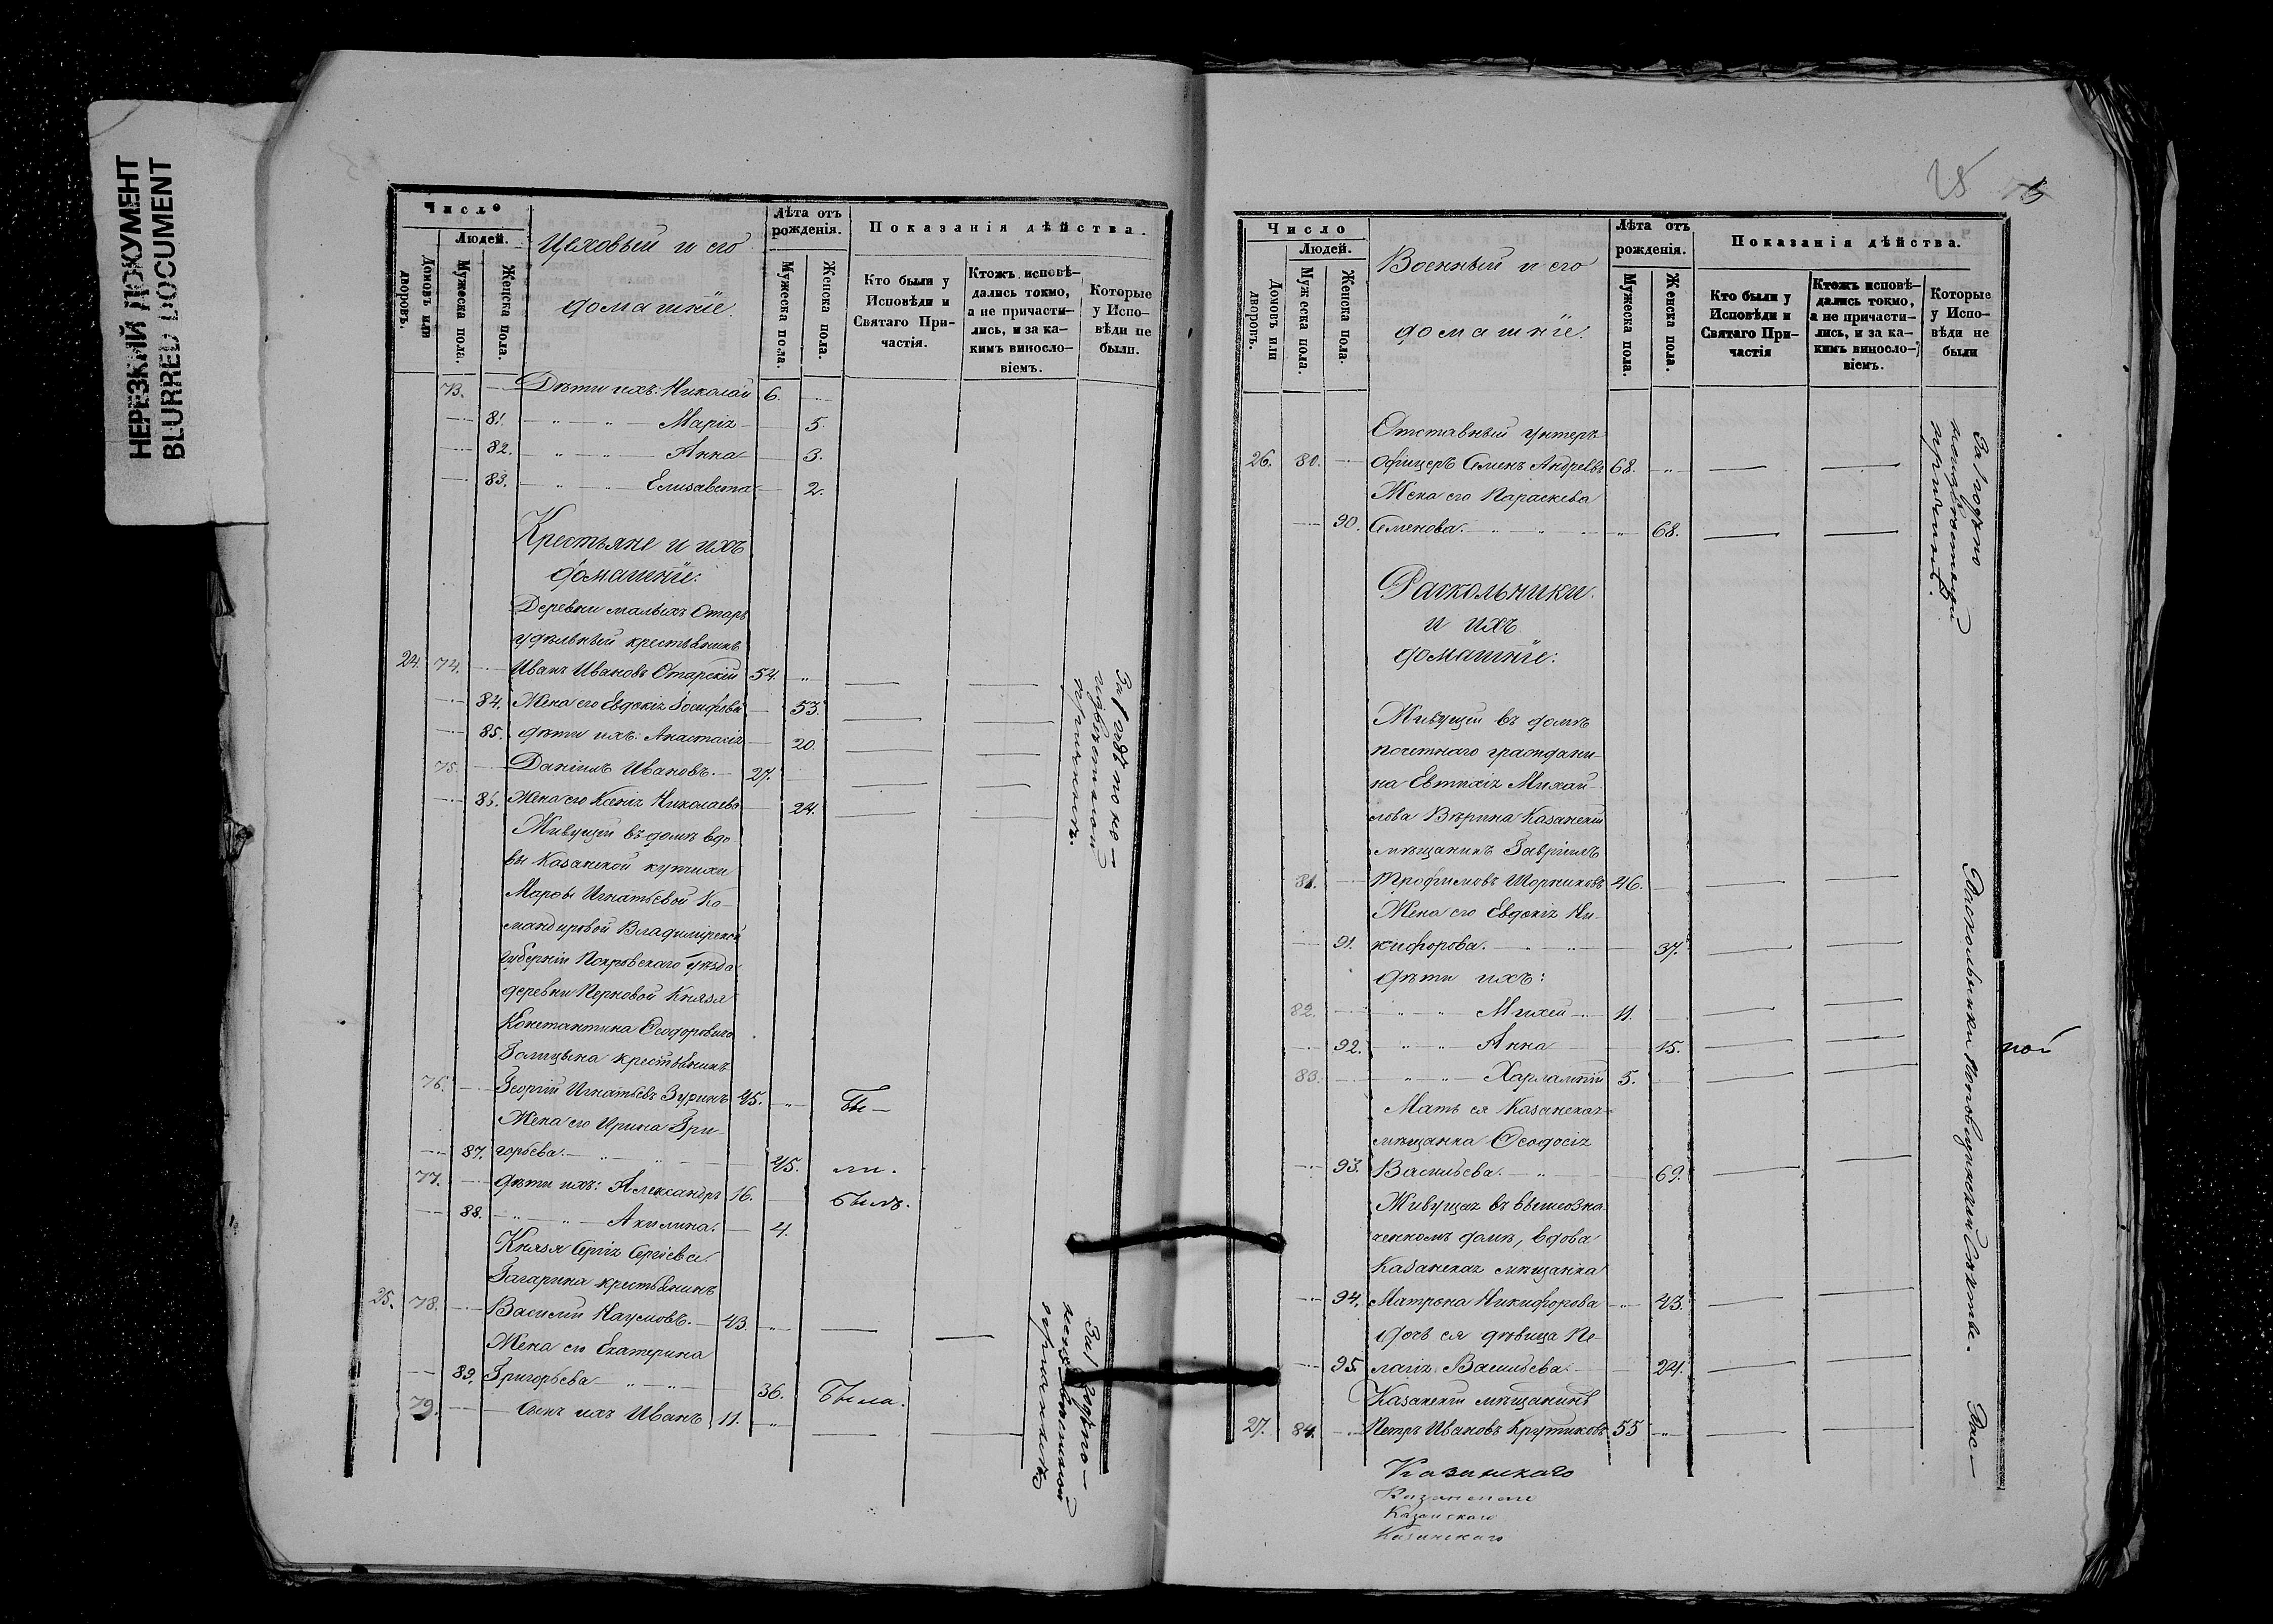 НЕРЕЗКИЙ ДОКУМЕНТ
BLURRED DOCUMENT
Число
Людей.
Домовъ или дворовъ.
Мужеска пола.
Женска пола.
Цеховый и его
домашніе.
Лѣта отъ рожденія.
Мужеска пола.
Женска пола.
Показанія дѣйства.
Кто были у Исповѣди и Святаго Причастія.
Ктожъ исповѣдались токмо, а не причастились, и за какимъ винословіемъ.
Которые у Исповѣди не были.
73. Дѣти ихъ: Николай 6.
81. Марія 5.
82. Анна 3.
83. Елисавета 2.
Крестьяне и ихъ
домашніе:
Деревни малыхъ Отаръ
удѣльный крестьянинъ
24. 74. Иванъ Ивановъ Отарскій 54
84. Жена его Евдокія Іосифова 53.
85. Дѣти ихъ: Анастасія 20.
75. Даніилъ Ивановъ. 27.
86. Жена его Ксенія Николаева 24.
За 1 годъ по не-
извѣстной
причинѣ.
Живущій въ домѣ вдо-
вы Казанской купчихи
Марѳы Игнатьевой Ко-
мандировой Владимірской
Губерніи Покровскаго Уѣзда
деревни Перновой Князя
Константина Ѳеодоровича
Голицына крестьянинъ
76. Георгій Игнатьевъ Зуринъ 45. Бы-
Жена его Ирина Гри-
87. горьева. 45. ли.
77. Дѣти ихъ: Александръ 16. Былъ.
88. Акилина. 4.
Князя Сергія Сергіева
Гагарина крестьянинъ
25. 78. Василій Наумовъ. 43.
Жена его Екатерина
89. Григорьева 36. Была.
79. Сынъ ихъ Иванъ 11.
За 1 годъ по
причинѣ
25
Число
Людей.
Домовъ или дворовъ.
Мужеска пола.
Женска пола.
Военный и его
домашніе.
Лѣта отъ рожденія.
Мужеска пола.
Женска пола.
Показанія дѣйства.
Кто были у Исповѣди и Святаго Причастія
Ктожъ исповѣдались токмо, а не причастились, и за какимъ винословіемъ.
Которые у Исповѣди не были
Отставный унтеръ
26. 80. офицеръ Семенъ Андреевъ 68.
Жена его Параскева
90. Семенова. 68.
За 1 годъ по
неизвѣстной
причинѣ.
Раскольники
и ихъ
домашніе:
Живущій въ домѣ
почетнаго граждани-
на Евтихія Михай-
лова Вѣрина Казанскій
мѣщанинъ Гавріилъ
81. Трофимовъ Шорниковъ 46.
Жена его Евдокія Ни-
91. кифорова. 37.
Дѣти ихъ:
82. Михей 11.
92. Анна 15.
83. Харлампій 5.
Мать ея Казанская
мѣщанка Ѳеодосія
93. Васильева. 69.
Живущая въ вышеозна
ченномъ домѣ, вдова
Казанская мѣщанка
94. Матрона Никифорова 43.
Дочь ея дѣвица Пе-
95. лагія Васильева 24.
Казанскій мѣщанинъ
27. 84. Петръ Ивановъ Крупниковъ 55
Раскольники поповщинской секты.
Рас-
Казанскаго
Казанскаго
Казанскаго